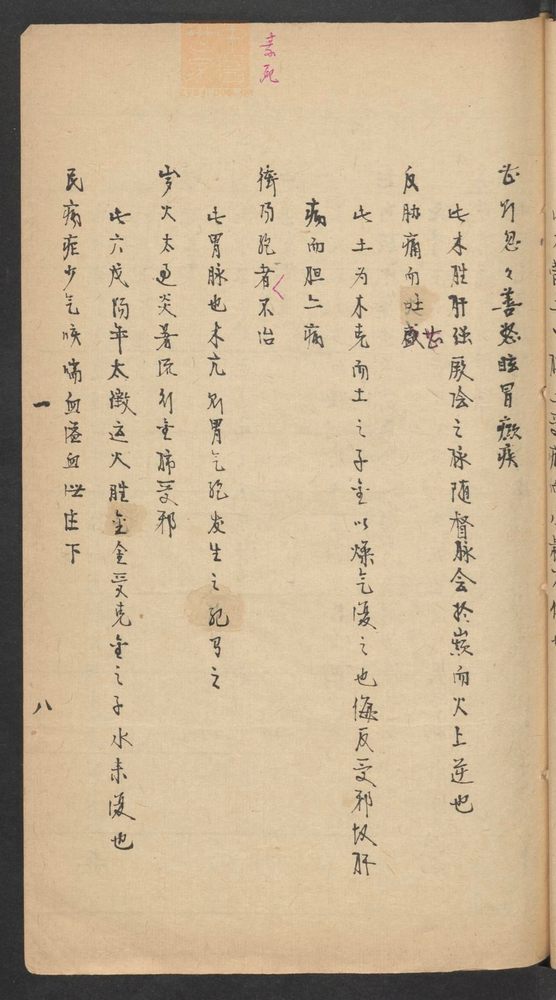 甚則忽々善怒眩冒癫疾
此木胜肝强厥陰之脉随督脉会於巅而火上逆也
反胁痛而吐甚
此土为木克而土之子金以燥气復之也侮反受邪故肝
病而胆亦病
衝陽绝者不治
此胃脉也木亢则胃气绝发生之纪

岁火太过炎暑流行金肺受邪
此六戊陽年太徵运火胜金金受克金之子水来復也
民病疟少气咳喘血溢血泄注下
一
八